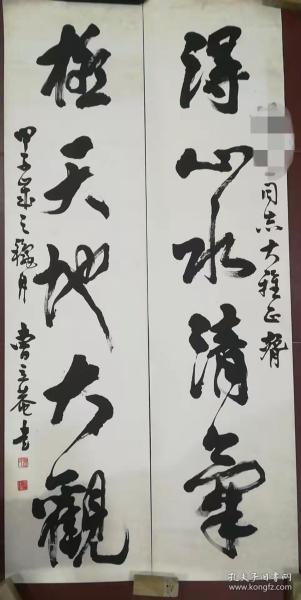 得山水清氣
同志大雅正腕
極天地大觀
甲子歲之穐月 曹立庵書
孔夫子旧书网